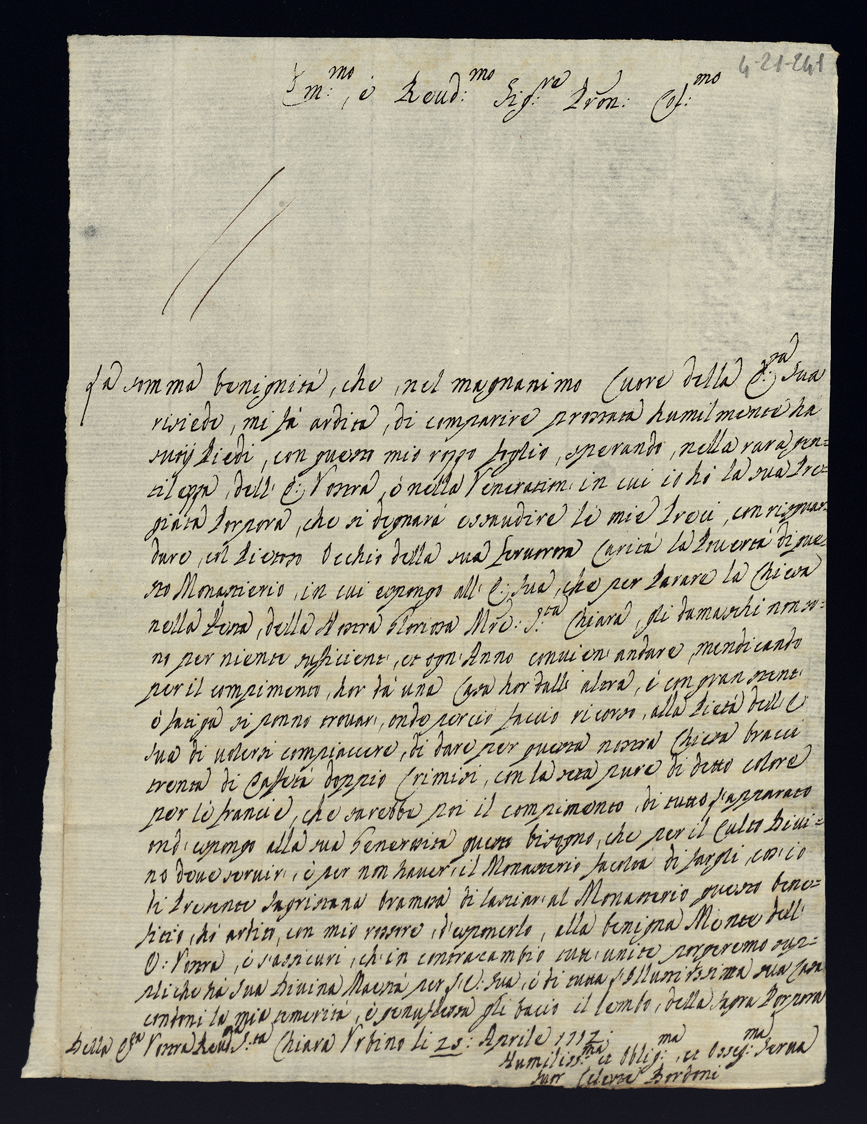 4-21-241
Em:mo, é Reud:mo Sig:re Prōn: Col:mo
La somma benignitá, che, nel magnanimo Cuore della E:za Sua
risiede, mi fá ardita, di comparire prostrata humilmente ha
suoij Piedi, con questo mio rozzo foglio, sperando, nella rara gen=
tilezza, dell' E: Vostra, é nella Veneration' in cui io hó la sua Pre=
giata Porpora, che si degnará essaudire le mie Preci, con risguar=
dare, col Pietoso Occhio della sua feruorosa Caritá la Pouertá di que=
sto Monasterio, in cui espongo all' E: Sua, che per Parare la Chiesa
nella Festa, della Nostra Gloriosa Mre: S:ta Chiara, gli damaschi non so=
no per niente sufficient', et ogn' Anno convien' andare, mendicando
per il compimento, hor dá una Casa hor dall' altra, é con gran stent'
é fatiga si ponno trouar', onde percio faccio ricorso, alla Pietá dell' E
sua di uolersi compiaccere, di dare per questa nostra Chiesa bracci
trenta di Taffetá doppio Crimisi, con la seta pure di detto colore
per le francie, che sarebbe poi il compimento, di tutto l'apparato
ond' espongo alla sua Generosita questo bisogno, che per il Culto Divi=
no deue seruir', é per non hauer', il Monasterio facolta di fargli, cosi io
di Presente Sagristana bramosa di lasciar' al Monasterio questo bene=
fitio, hó ardito, con mio rossore, d'esponerlo, alla benigna Mente dell'
E: Vostra, é s'assicuri, ch' in contracambio tutte unite porgeremo sup=
pliche há Sua Divina Maestá per l'E: Sua, é di tutta l'Illustrissima sua Casa
condoni la mia temeritá, é genuflessa gli bacio il lembo, della Sagra Porpora
Della E:za Vostra Reud:ma S:ta Chiara Vrbino li 25: Aprile 1712:
Humiliss:ma et Oblig:ma, et Osseq:ma Serua
Suor Celeste Bordoni